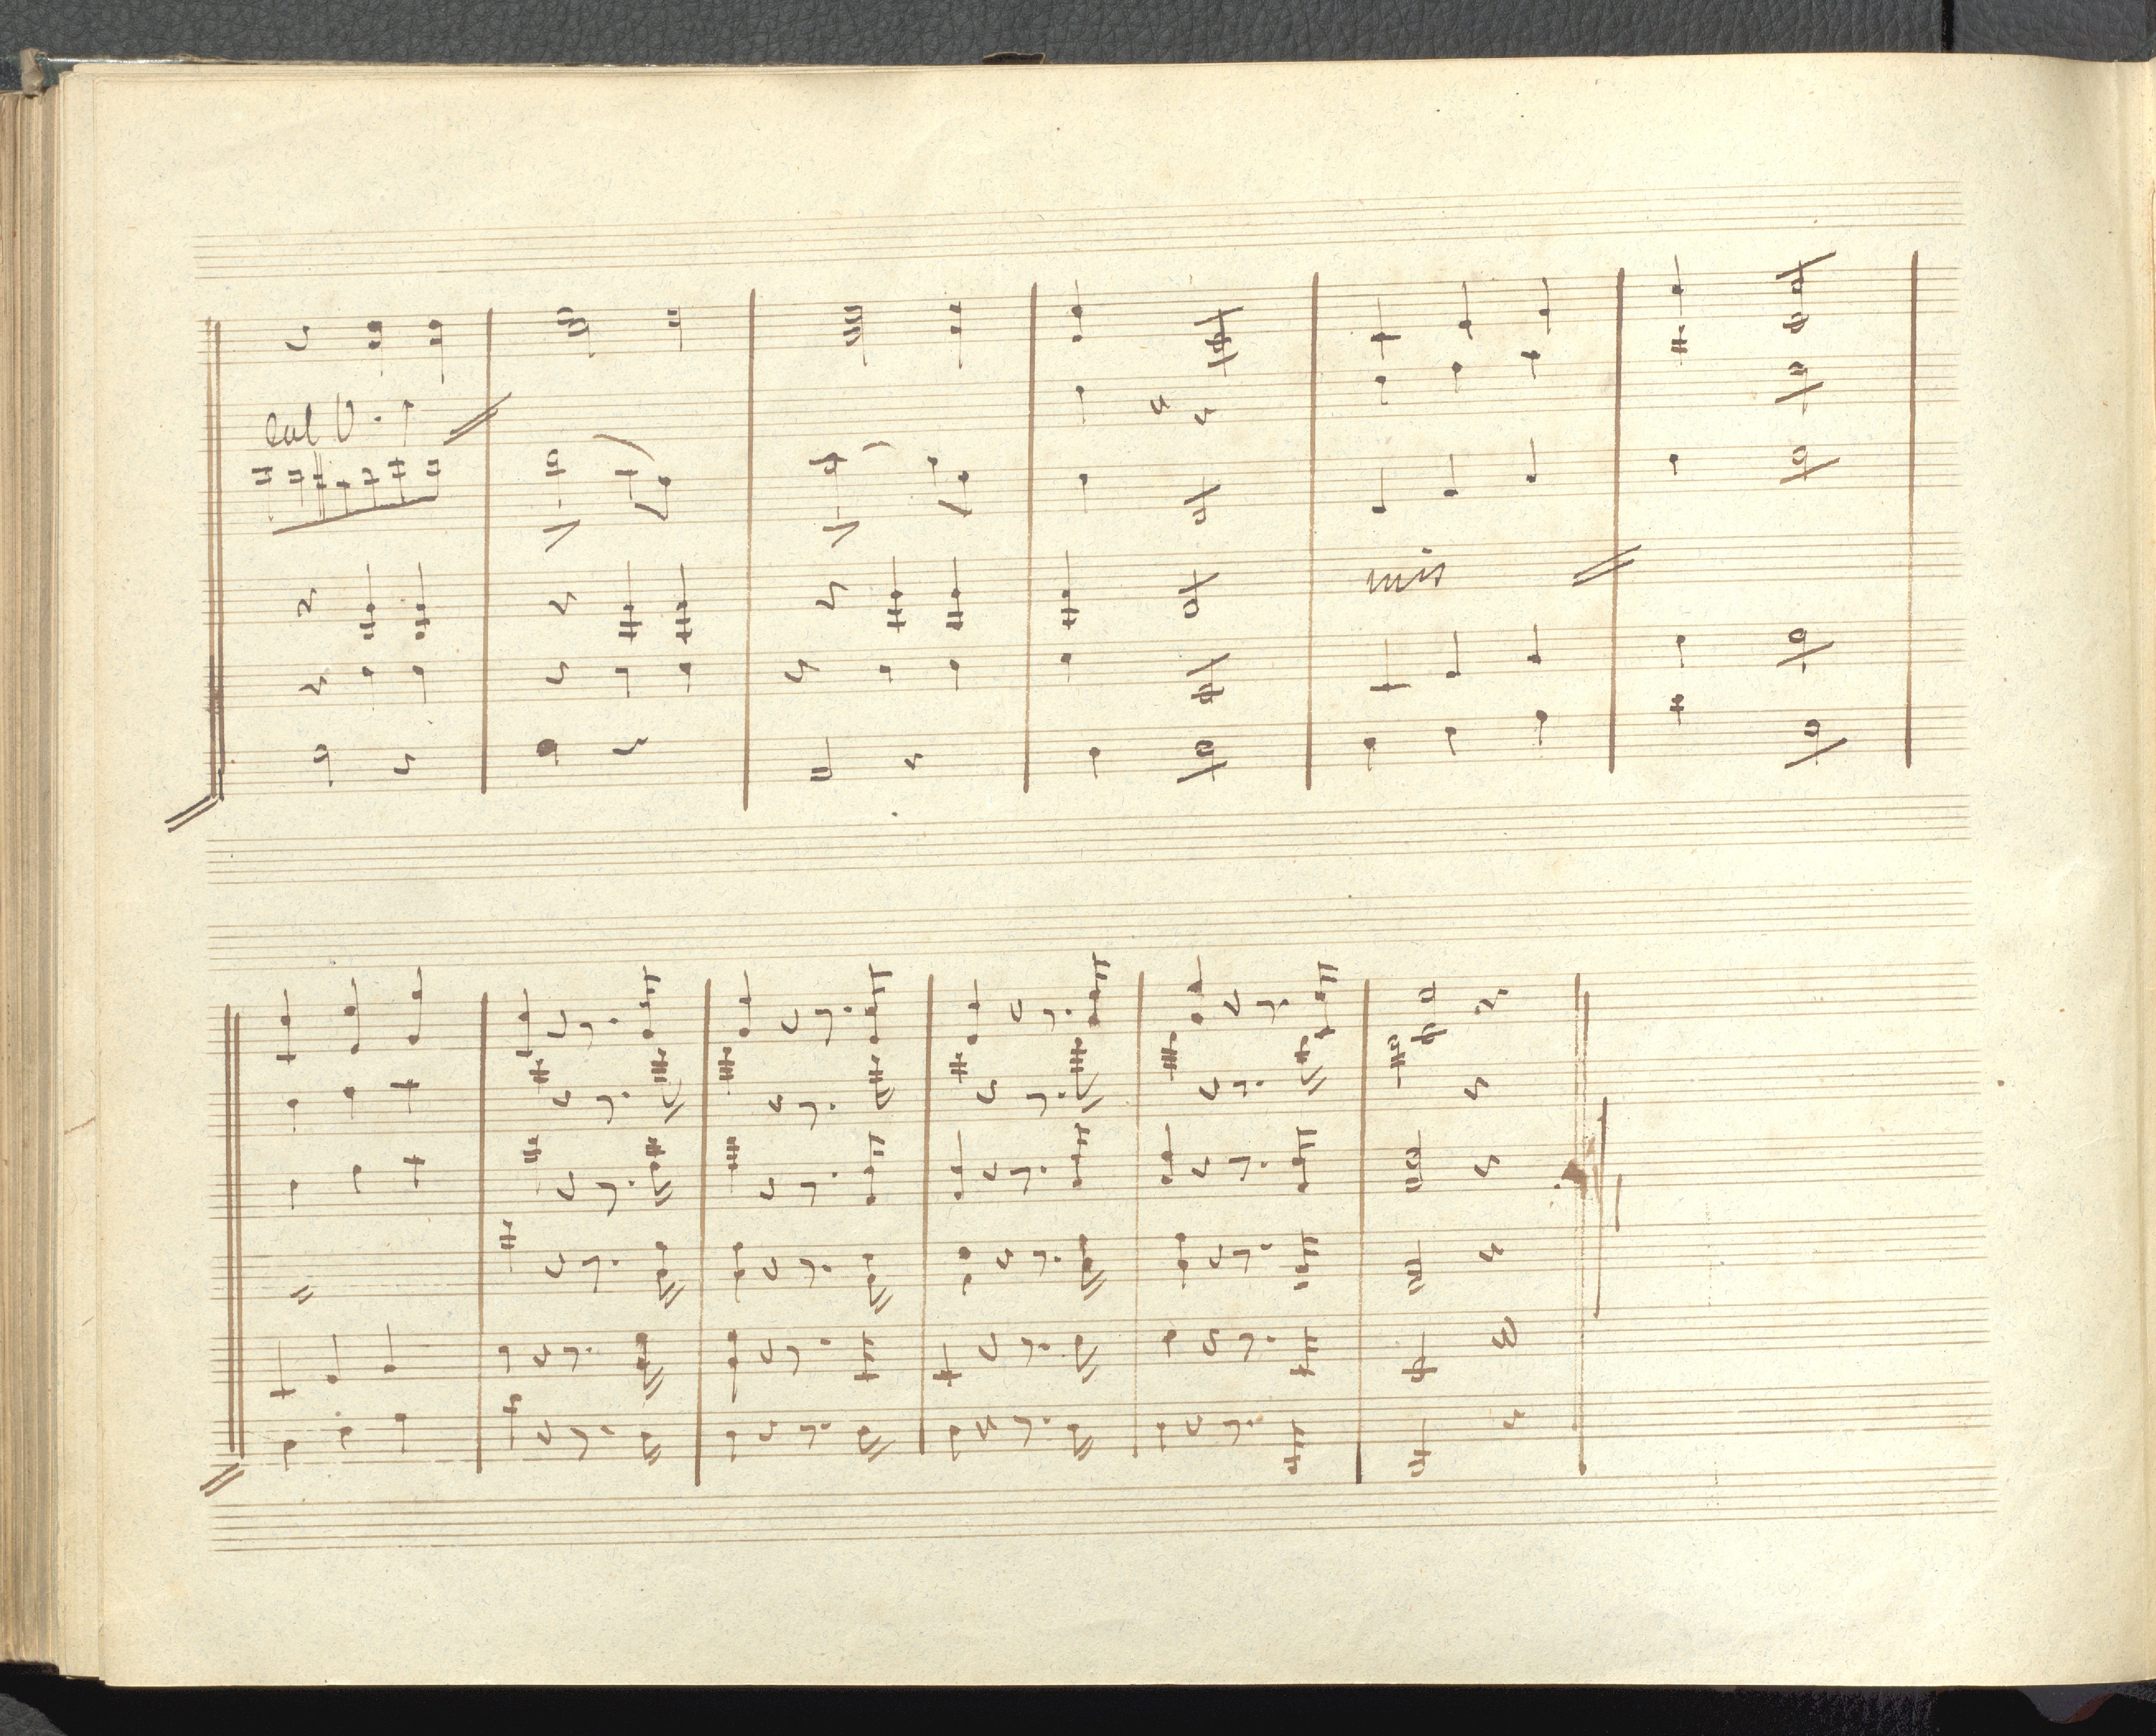 col V.
unis